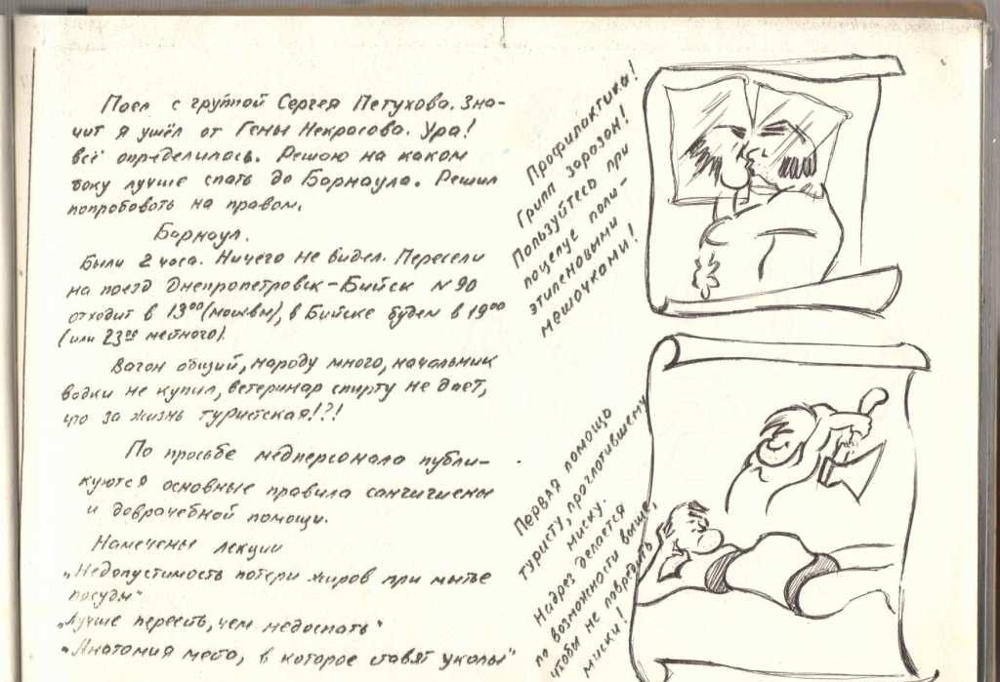 Поел с группой Сергея Петухова. Зна-
чит я ушёл от Гены Некрасова. Ура!
всё определилось. Решаю на каком
боку лучше спать до Барнаула. Решил
попробовать на правом.
Барнаул.
Были 2 часа. Ничего не видел. Пересели
на поезд Днепропетровск-Бийск N 90
отходит в 13⁰⁰ (москвы), в Бийске будем в 19⁰⁰
(или 23⁰⁰ местного).
Вагон общий, народу много, начальник
водки не купил, ветеринар спирту не даёт,
что за жизнь туристская!?!
По просьбе медперсонала публи-
куются основные правила сангигиены
и доврачебной помощи.
Намечены лекции
„Недопустимость потери жиров при мытье
посуды"
„Лучше переесть, чем недоспать"
„Анатомия места, в которое ставят уколы"
Профилактика!
Грипп заразен!
Пользуйтесь при
поцелуе поли-
этиленовыми
мешочками!
Первая помощь
туристу, проглотившему
миску.
Надрез делается
по возможности выше,
чтобы не повредить
миски!